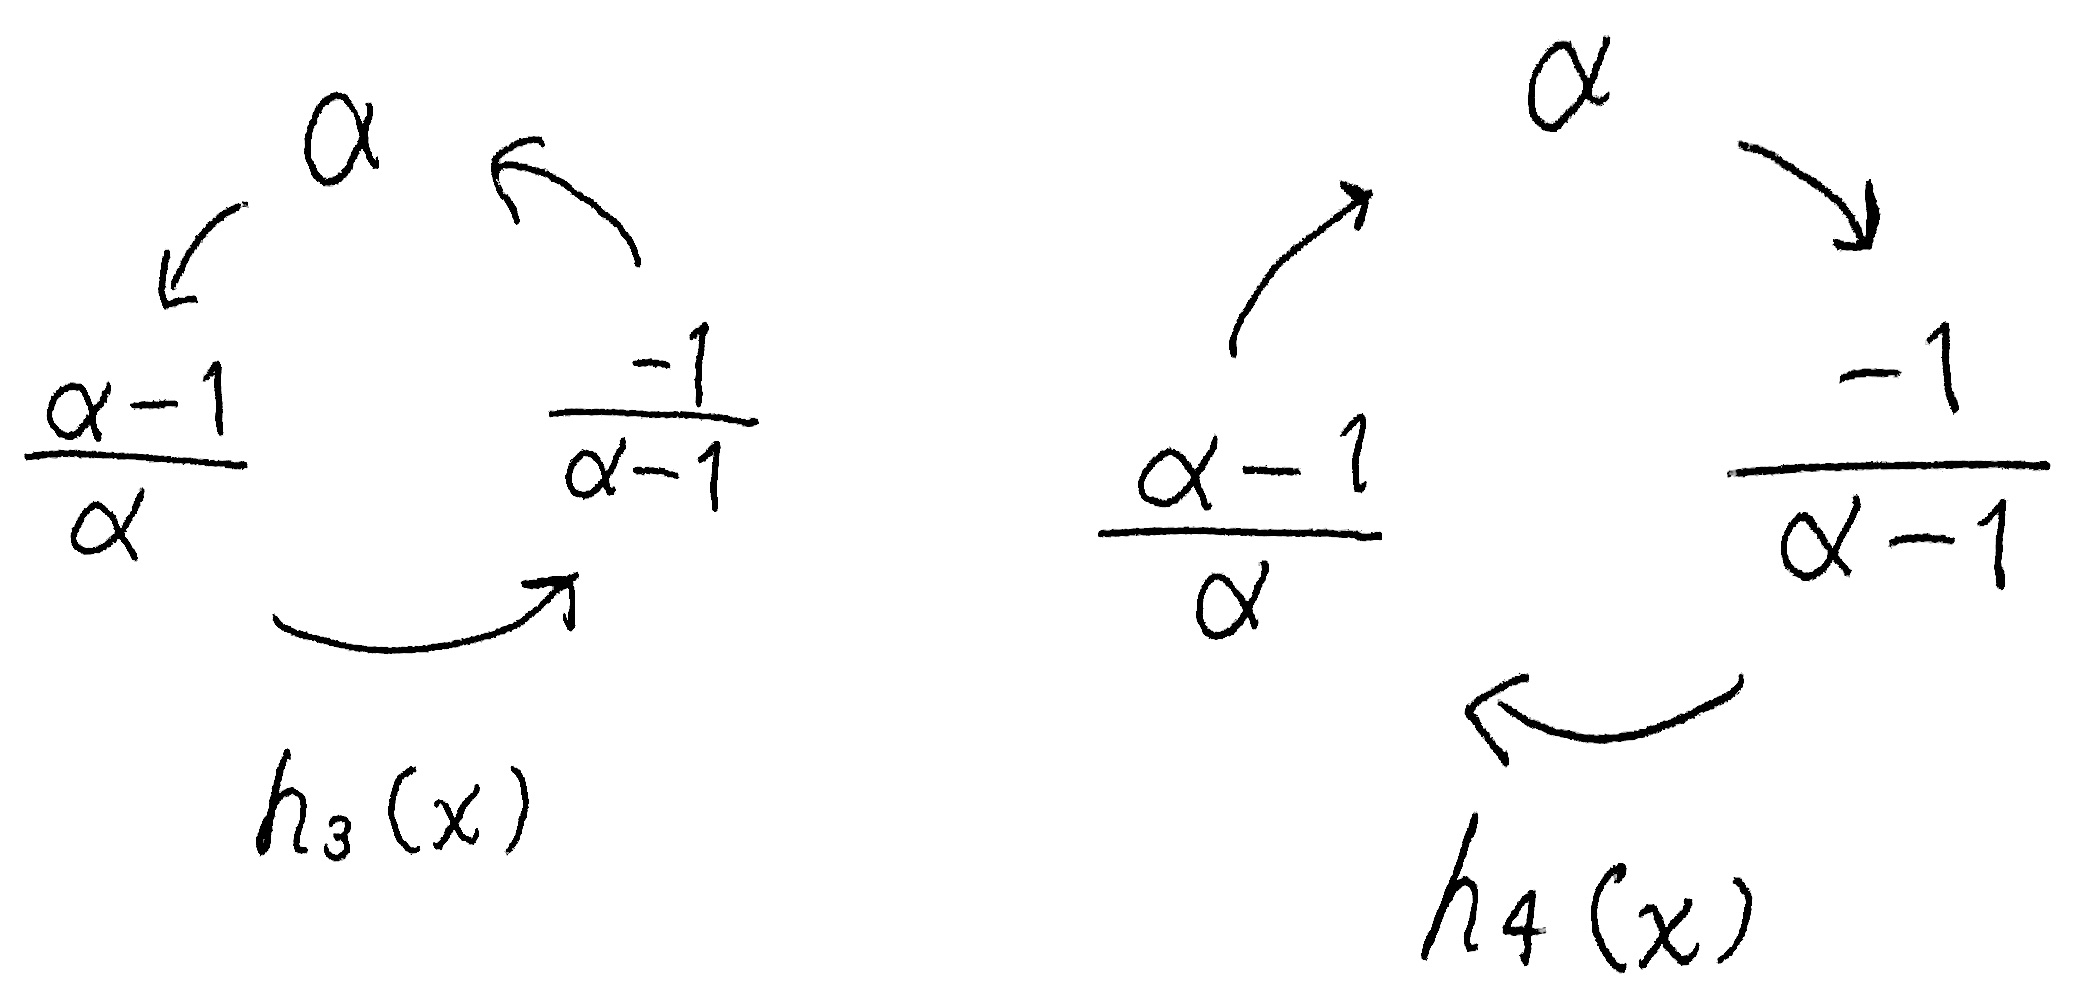 α
α-1
α
-1
α-1
h₃(x)
α
α-1
α
-1
α-1
h₄(x)